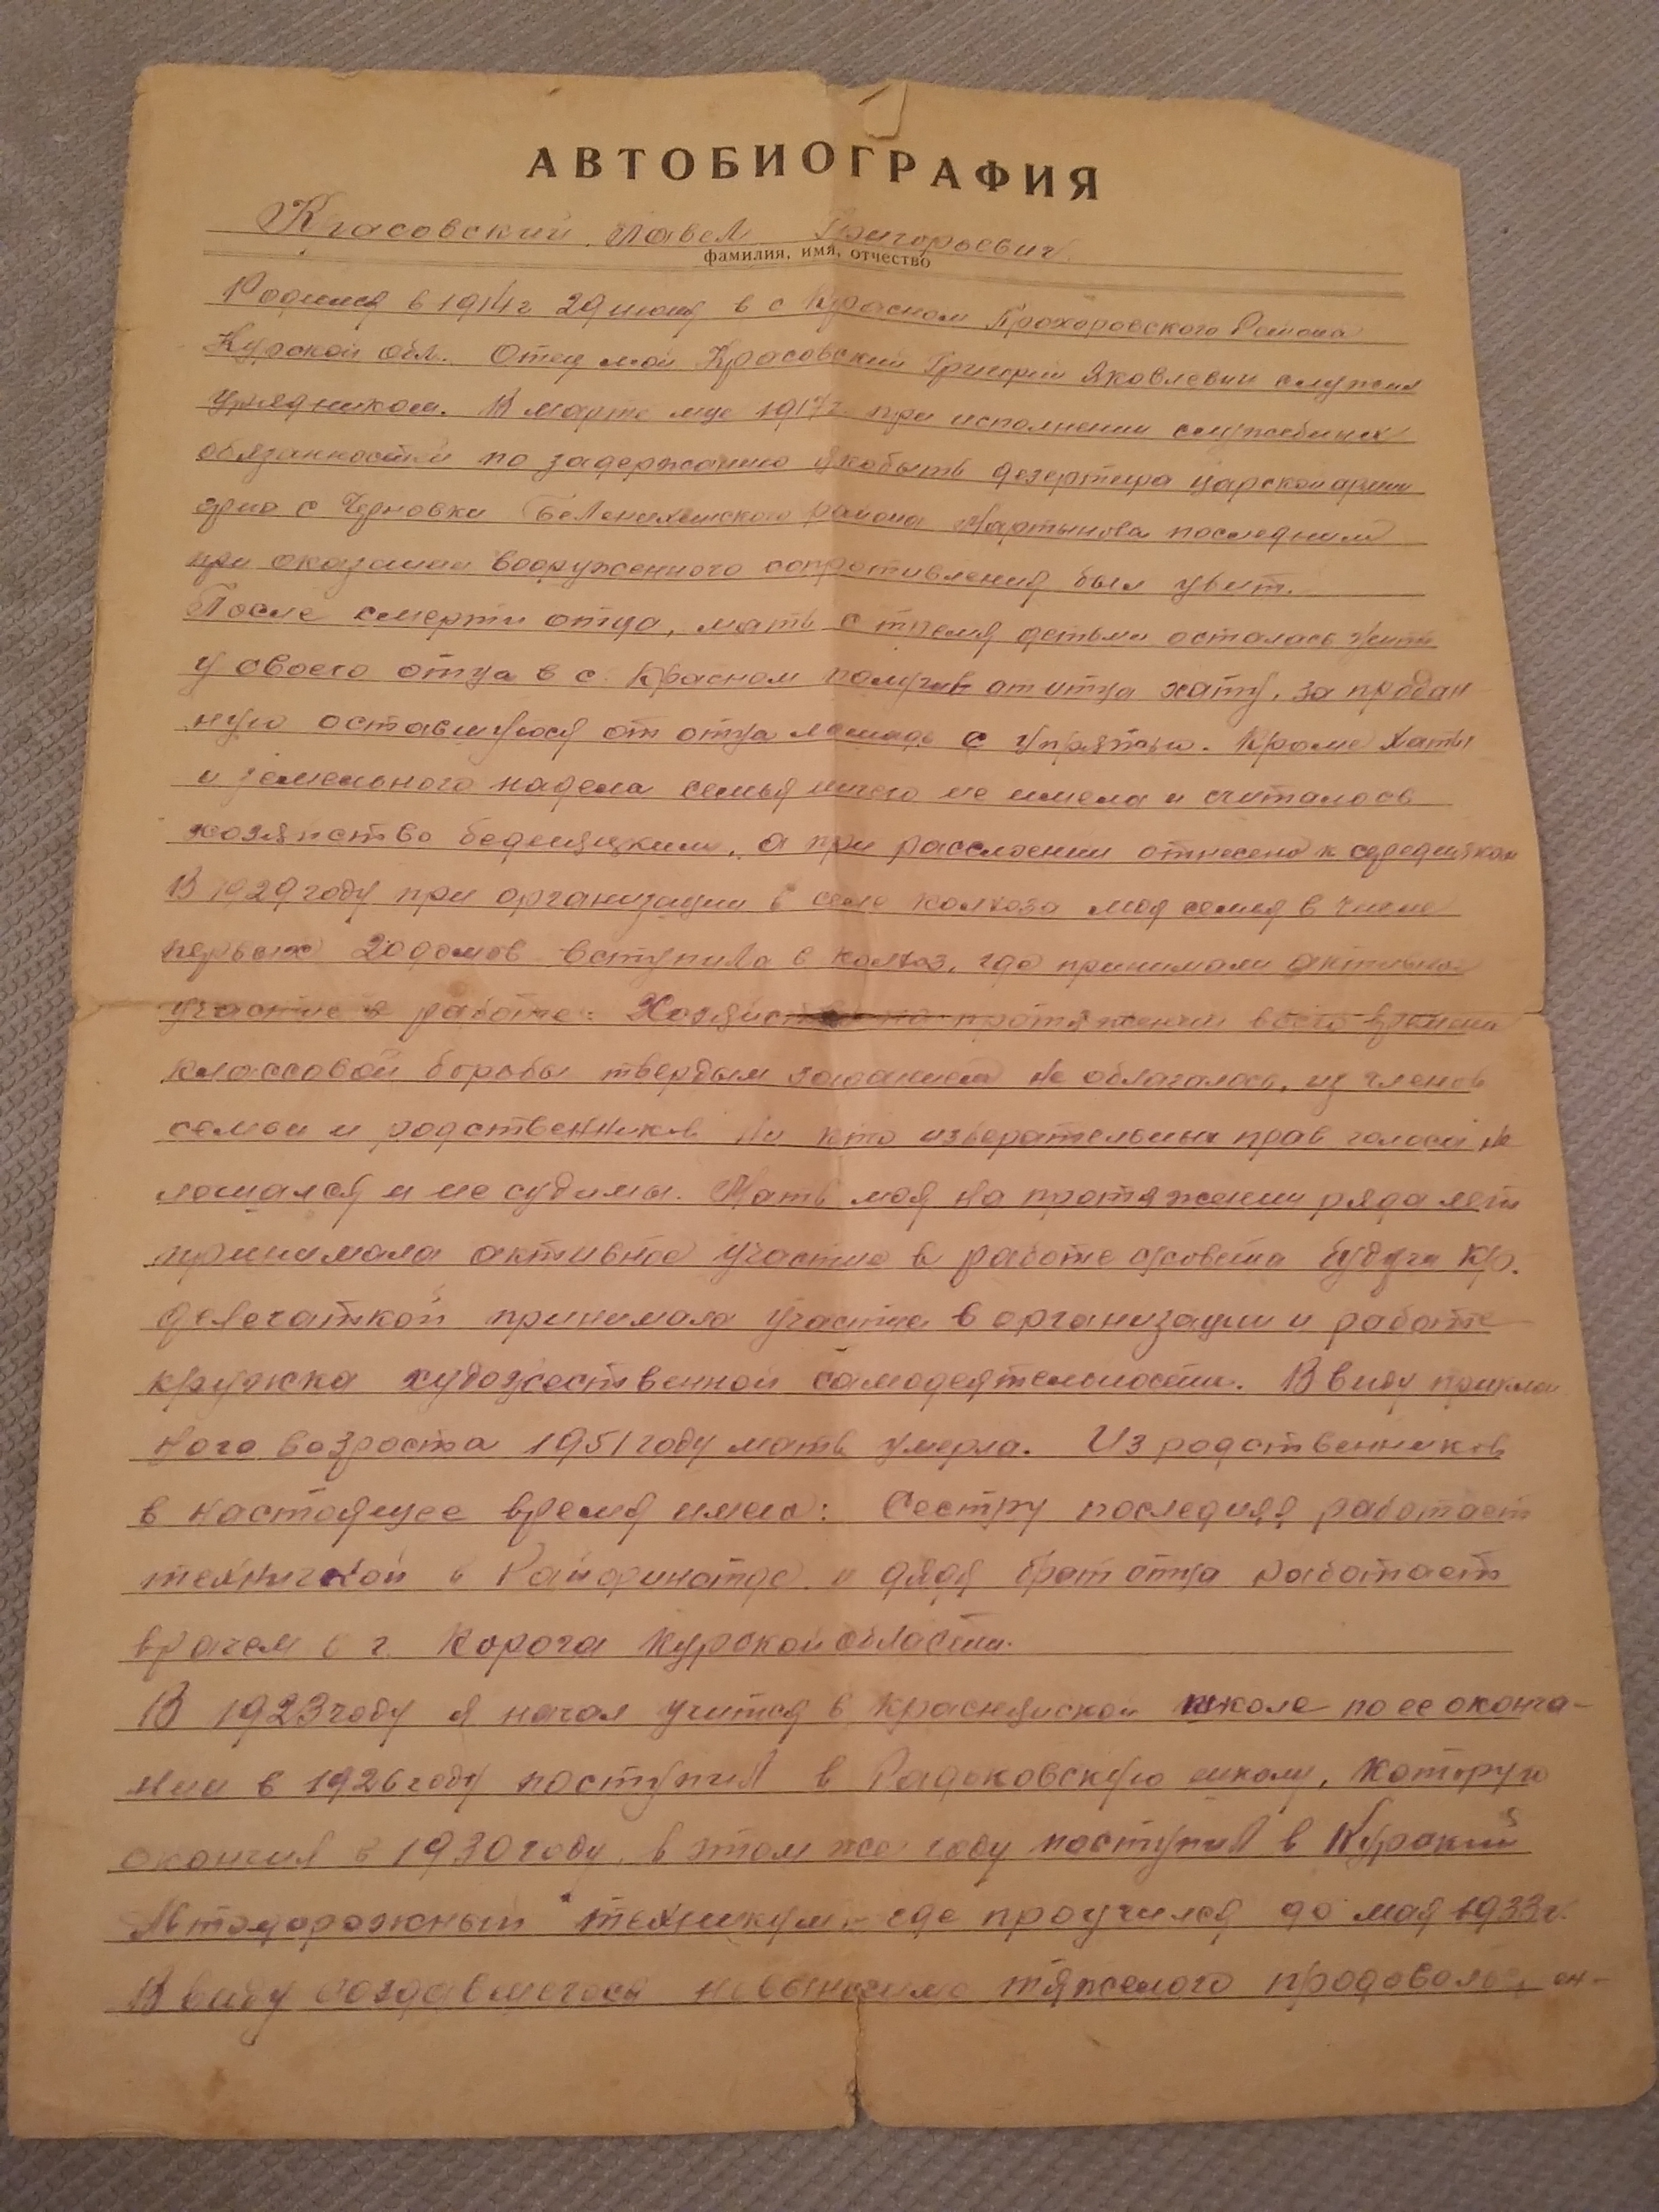 АВТОБИОГРАФИЯ
Красовский Павел Григорьевич
фамилия, имя, отчество
Родился в 1914г 29 июня в с Красном Прохоровского Района
Курской обл. Отец мой Красовский Григорий Яковлевич служил
урядником. В марте м-це 1917г. при исполнении служебных
обязанностей по задержанию якобыть дезертира царской армии
с Черновки Беленихинского района Мартынова последним
при оказании вооруженного сопротивления был убит.
После смерти отца, мать с тремя детьми осталась жить
у своего отца в с. Красном получив от отца хату, за продан
ную оставшуюся от отца лошадь с упряжью. Кроме хаты
и земельного надела семья ничего не имела и считалось
хозяйство бедняцким, а при расслоении отнесено к середняком
В 1929 году при организации в селе колхоза моя семья в числе
первых 20 домов вступила в колхоз, где принимали активное
участие в работе. Хозяйство на протяжении всего времени
классовой борьбы твердым заданием не облагалось, из членов
семьи и родственников ни кто избирательных прав голоса не
лошался и не судимы. Мать моя на протяжении ряда лет
принимала активное участие в работе с/совета будучи кр.
делегаткой принимала участие в организации и работе
кружка художественной самодеятельности. В виду приклон
ного возроста 1951 году мать умерла. Из родственников
в настоящее время имею: Сестру последняя работает
техничкой в и дядя брат отца работает
врачем в г. Короча Курской области.
В 1923 году я начал учится в Краснянской школе по ее оконча-
нии в 1926 году поступил в Радьковскую школу, которую
окончил в 1930 году, в этом же году поступил в Курский
Автодорожный техникум где проучился до мая 1933г.
В виду создавшегося невыносимо тяжелого продовольствен-